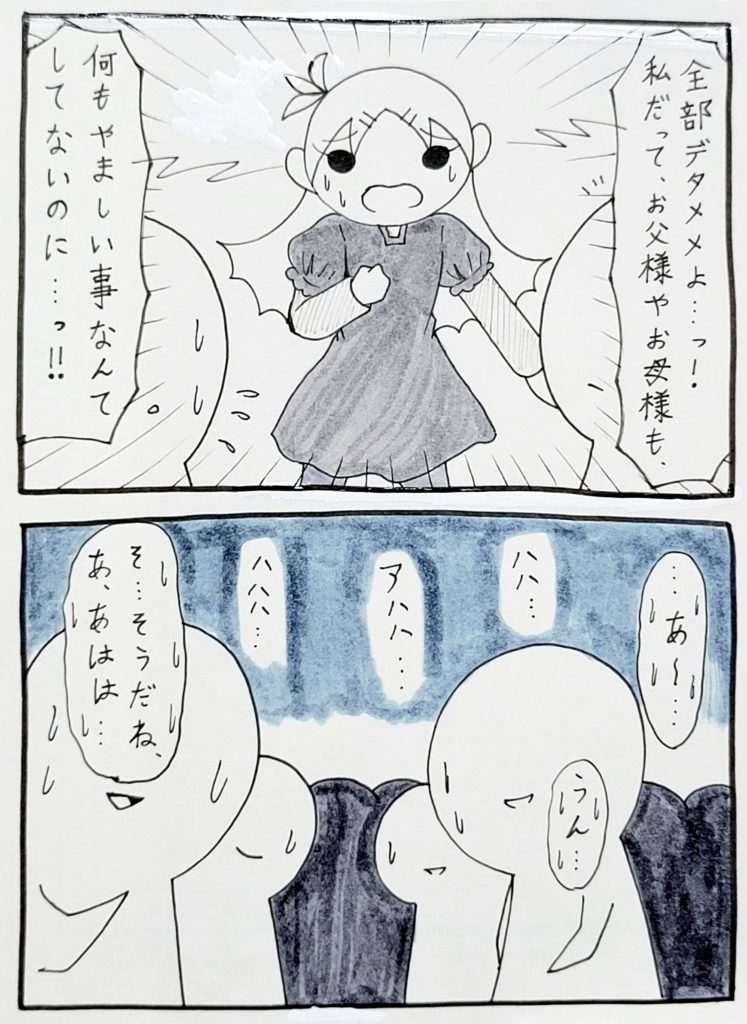 全部デタラメよ…っ!
私だって、お父様やお母様も、
何もやましい事なんて
してないのに…っ!!
…あ〜…
ハハ…
アハハ…
ハハハ…
うん…
そ…そうだね、
あ、あはは…